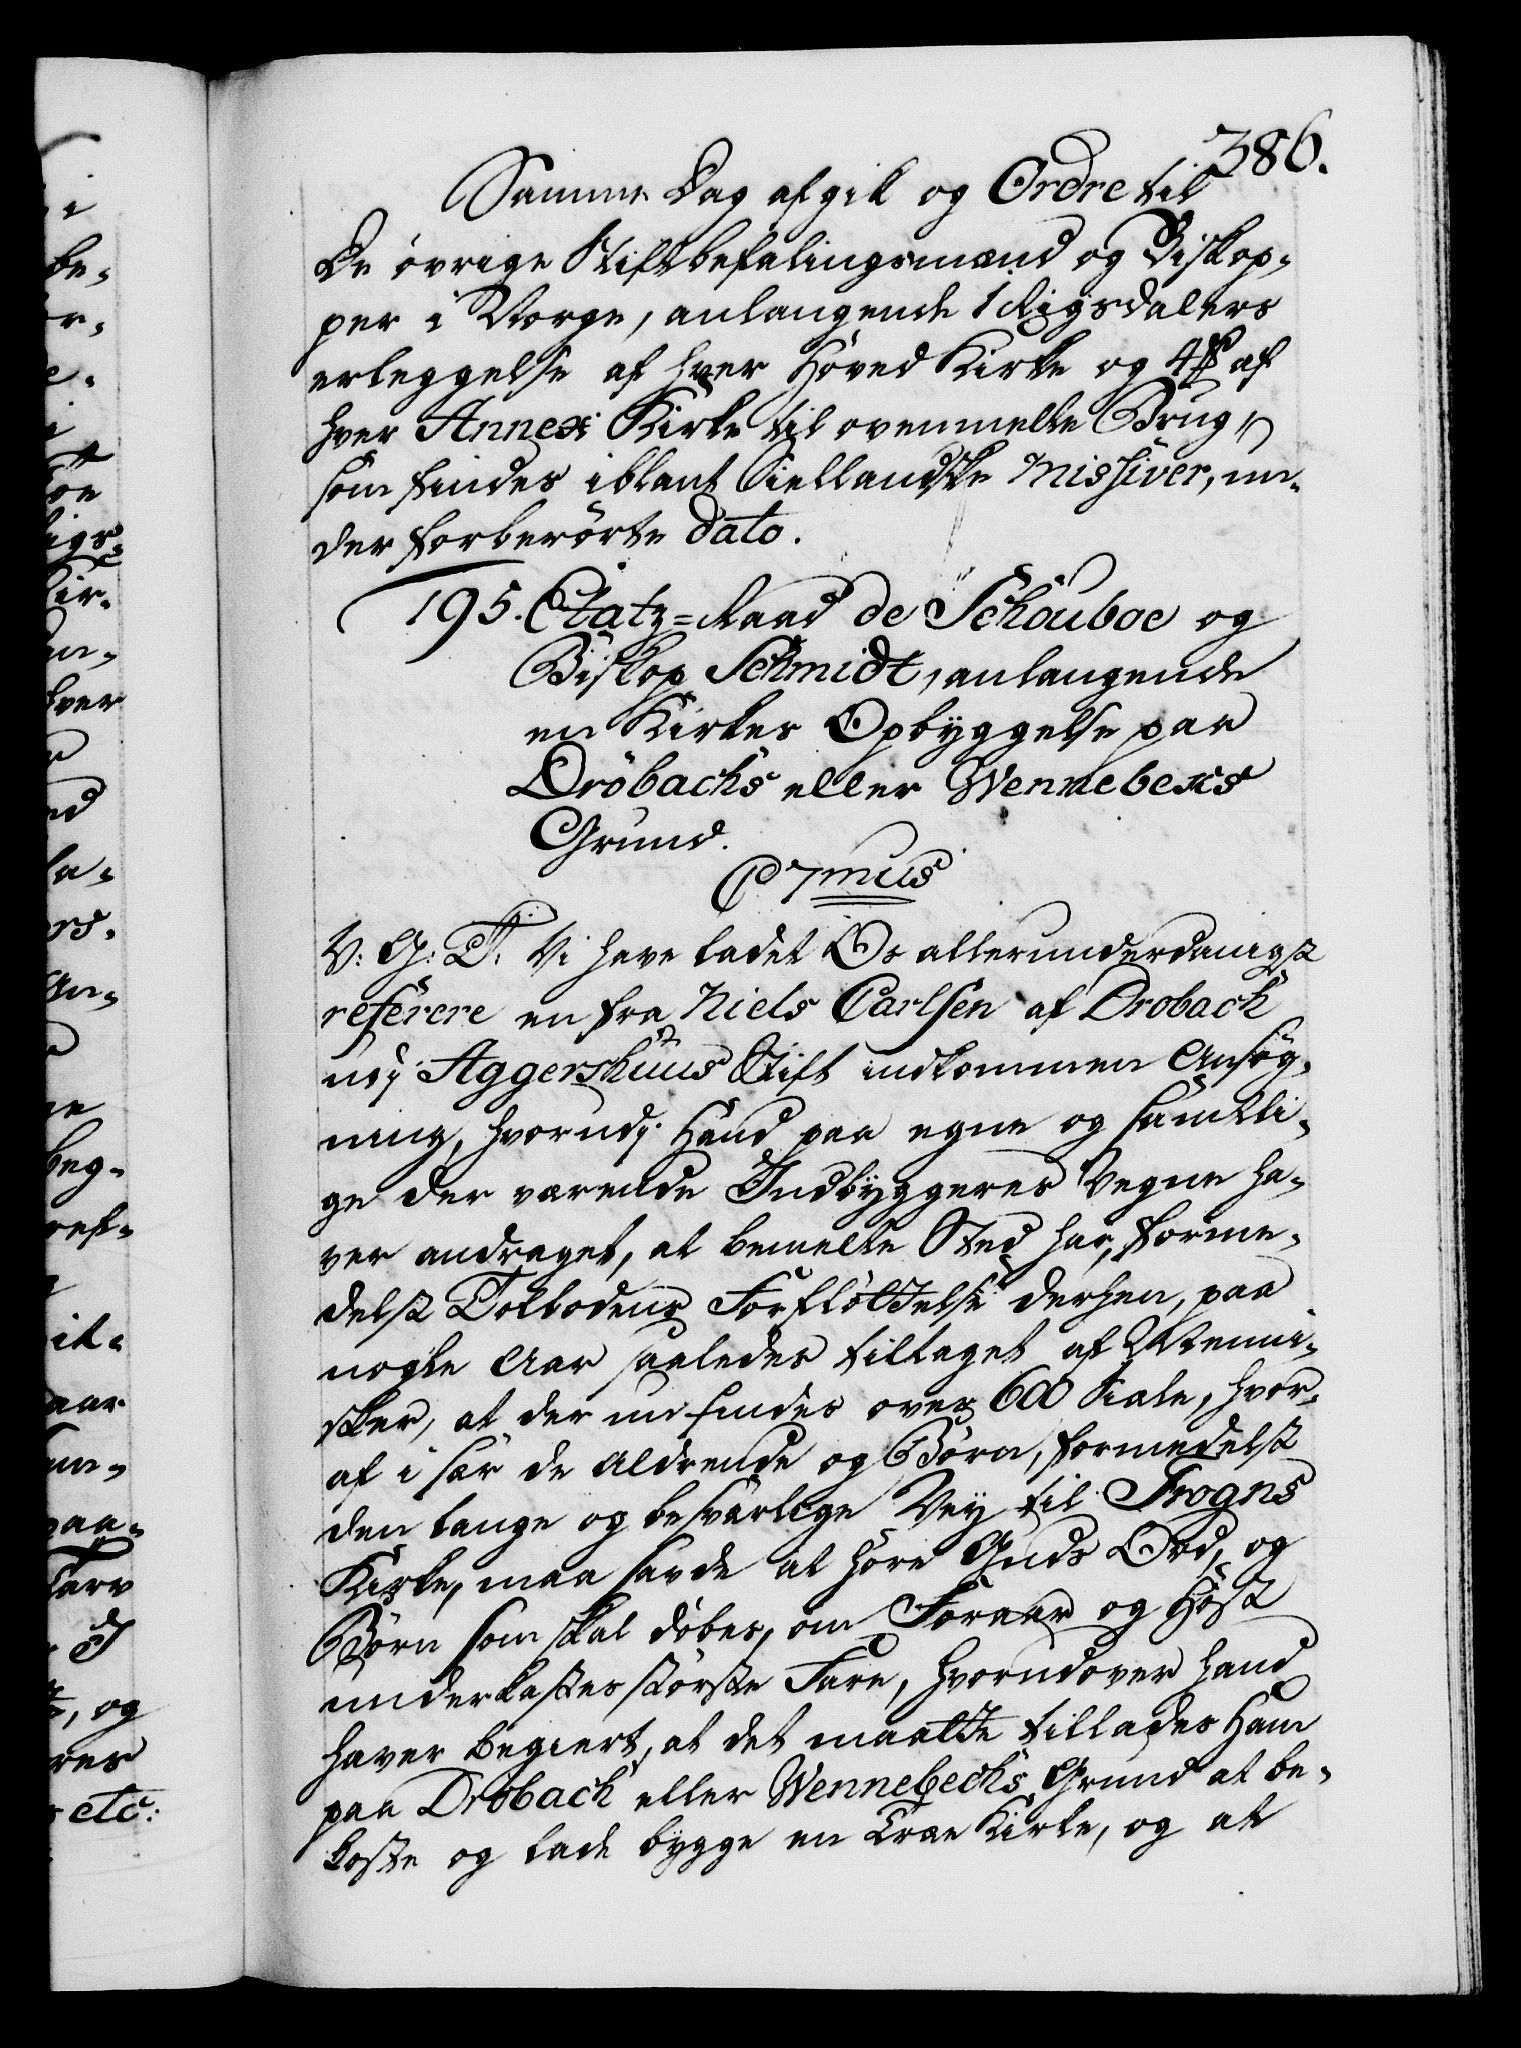 386.
Samme Dag afgik og Ordre til
De övrige Stiftbefalingsmænd og Biskop-
per i Norge, anlangende 1 Rigsdalers
erleggelse af hver Hoved Kirke og 4 af
hver Annex Kirke til ovenmelte Brug,
som findes iblant Siellandske Missiver, un-
der forberörte dato.
195. Etatz-Raad de Schouboe og
Biskop Schmidt, anlangende
en Kirkes Opbyggelse paa
Dröbachs eller Wennebexs
Grund.
C 7mus
V: G: T: Vi have ladet Os allerunderdanigst
referere en fra Niels Carlsen af Drobach
udj Aggershuus Stift indkommen Ansög-
ning, hvorudj Hand paa egne og samtli-
ge der værende Indbyggeres Vegne ha-
ver andraget, at bemelte Sted har, forme-
delst Tolbodens Forflöttelse derhen, paa
nogle Aar saaledes tiltaget af Menni-
sker, at der nu findes over 600 Siæle, hvor-
af i sær de Aldrende og Börn, formedelst
den lange og besværlige Vey til Frogns
Kirke, maa savde at höre Guds Ord, og
Börn som skal döbes, om Foraar og Höst
underkastes störste Fare, hvorudover hand
haver begiert, at det maatte tillades Ham
paa Dröbach eller Wennebechs Grund at be-
koste og lade bygge en Træe Kirke, og at